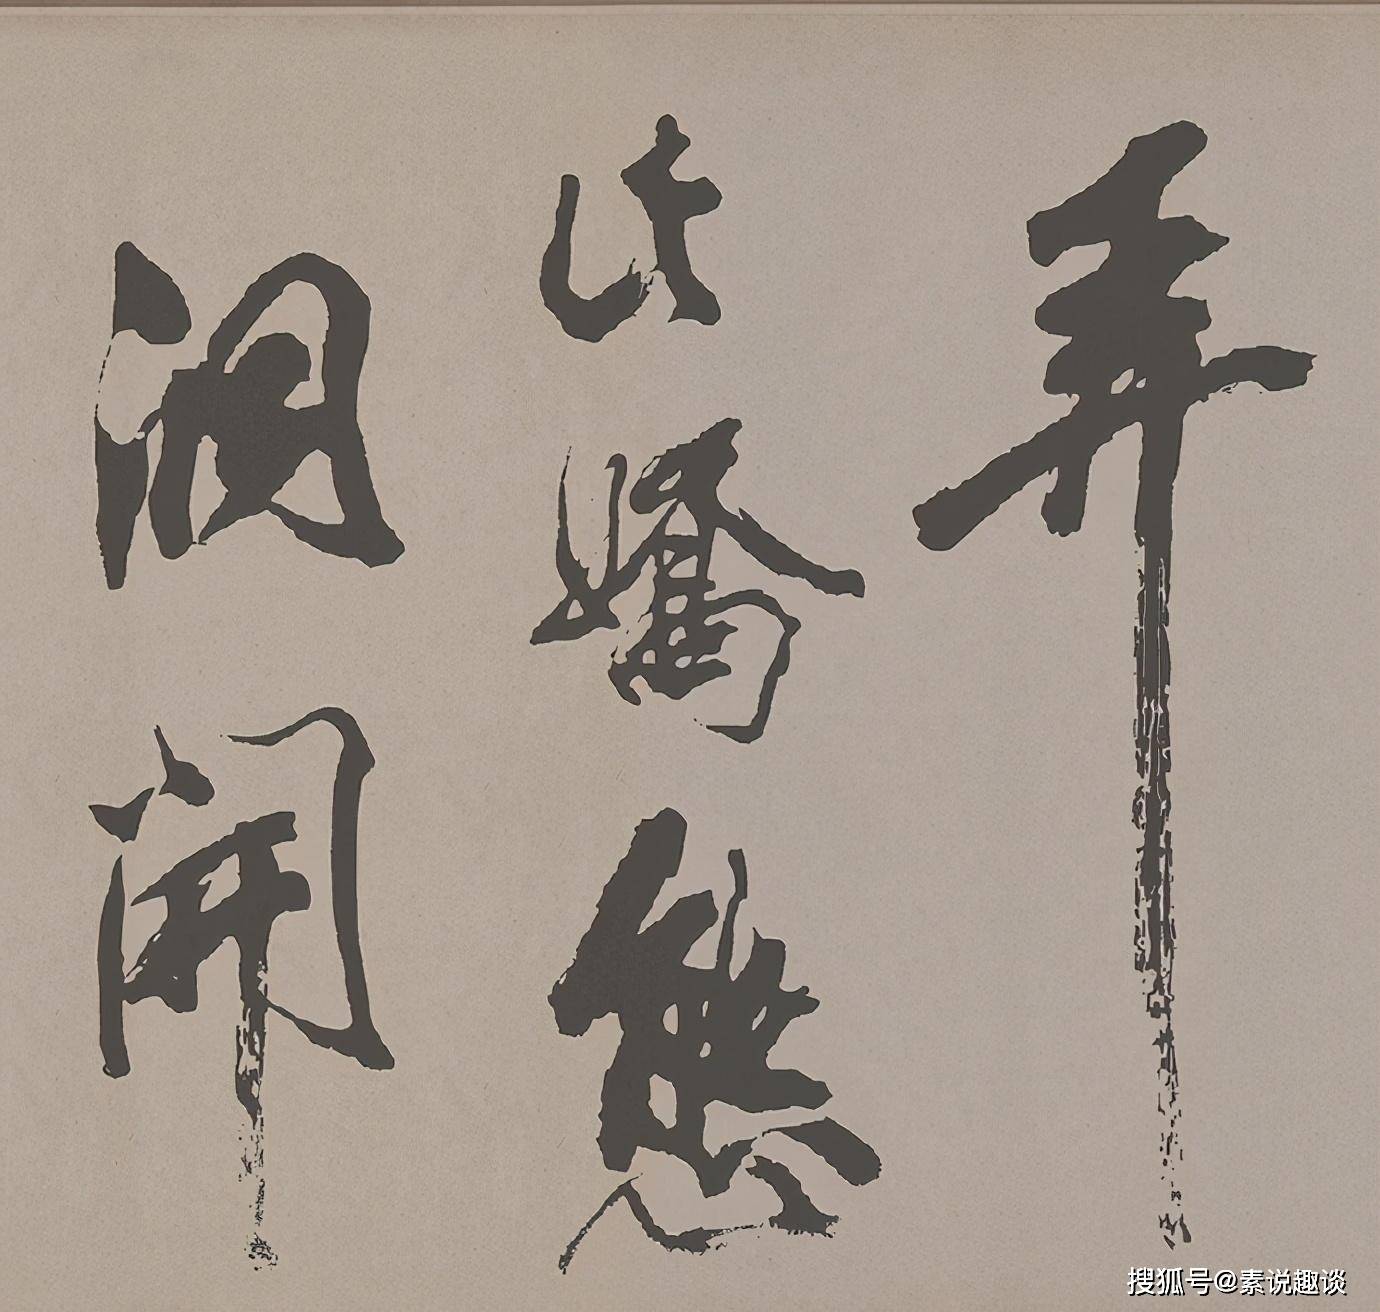 弄
此嬌態
洞開
搜狐号@素说趣谈